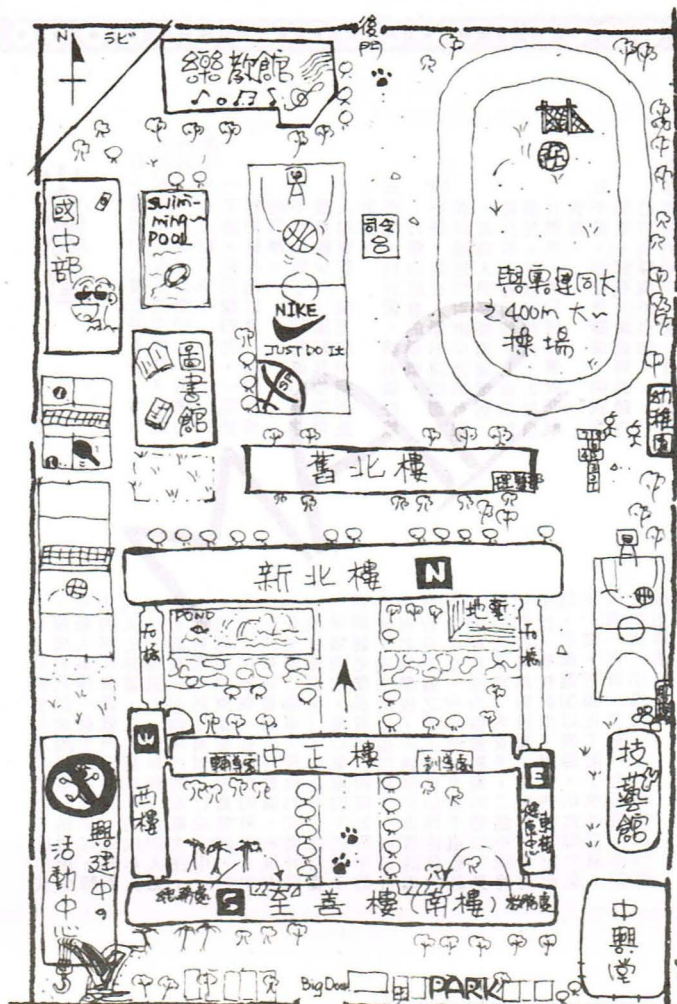 N
ラビ
後門
樂教館
國中部
Swim-
ming
POOL
司令台
NIKE
JUST DO It
與軍運同大
之400m大~
操場
圖書館
幼稚園
舊北樓
新北樓 N
POND
地墊
天橋
天橋
W
中正樓
輔導室
訓導處
E
西樓
東樓
健康中心
技藝館
興建中の
活動中心
總務處
S 至善樓(南樓)
教務處
中興堂
Big Door
PARK